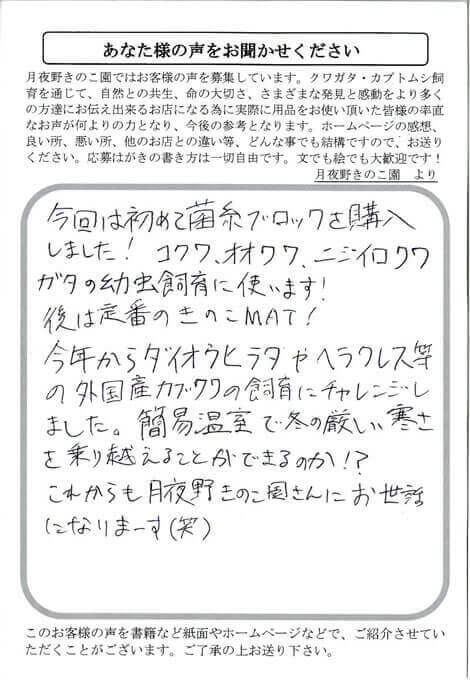 あなた様の声をお聞かせください
月夜野きのこ園ではお客様の声を募集しています。クワガタ・カブトムシ飼
育を通じて、自然との共生、命の大切さ、さまざまな発見と感動をより多く
の方達にお伝え出来るお店になる為に実際に用品をお使い頂いた皆様の率直
なお声が何よりの力となり、今後の参考となります。ホームページの感想、
良い所、悪い所、他のお店との違い等、どんな事でも結構ですので、お送り
ください。応募はがきの書き方は一切自由です。文でも絵でも大歓迎です！
月夜野きのこ園　より
今回は初めて菌糸ブロックを購入
しました！ コクワ、オオクワ、ニジイロクワ
ガタの幼虫飼育に使います！
後は定番のきのこMAT！
今年からダイオウヒラタやヘラクレス等
の外国産カブクワの飼育にチャレンジし
ました。簡易温室で冬の厳しい寒さ
を乗り越えることができるのか！？
これからも月夜野きのこ園さんにお世話
になりまーす(笑)
このお客様の声を書籍など紙面やホームページなどで、ご紹介させてい
ただくことがございます。ご了承の上お送り下さい。